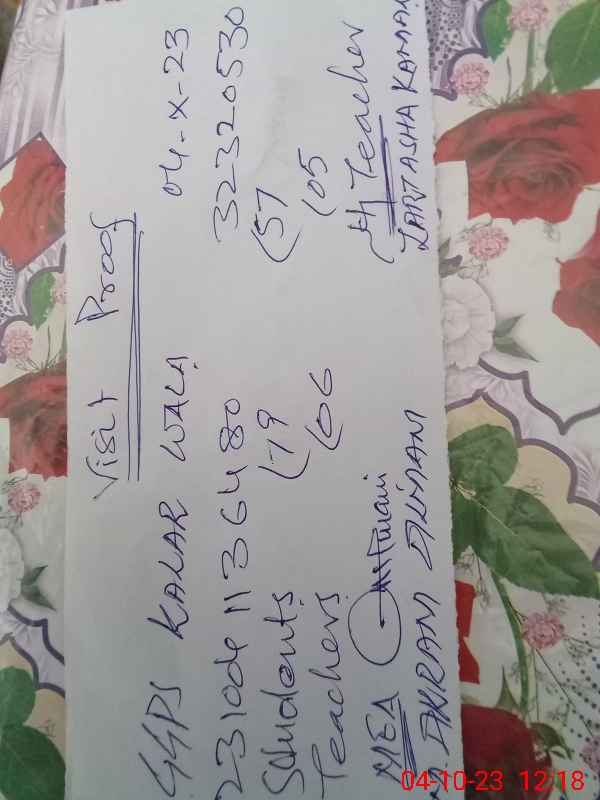 Visit Proof
GGPS KALAR WALA 04-X-23
231004113 6480 32320530
Students (79 (57
Teachers (06 (05
MEA H Teacher
IKRAM ZARTASHA KANWAL
04-10-23 12:18